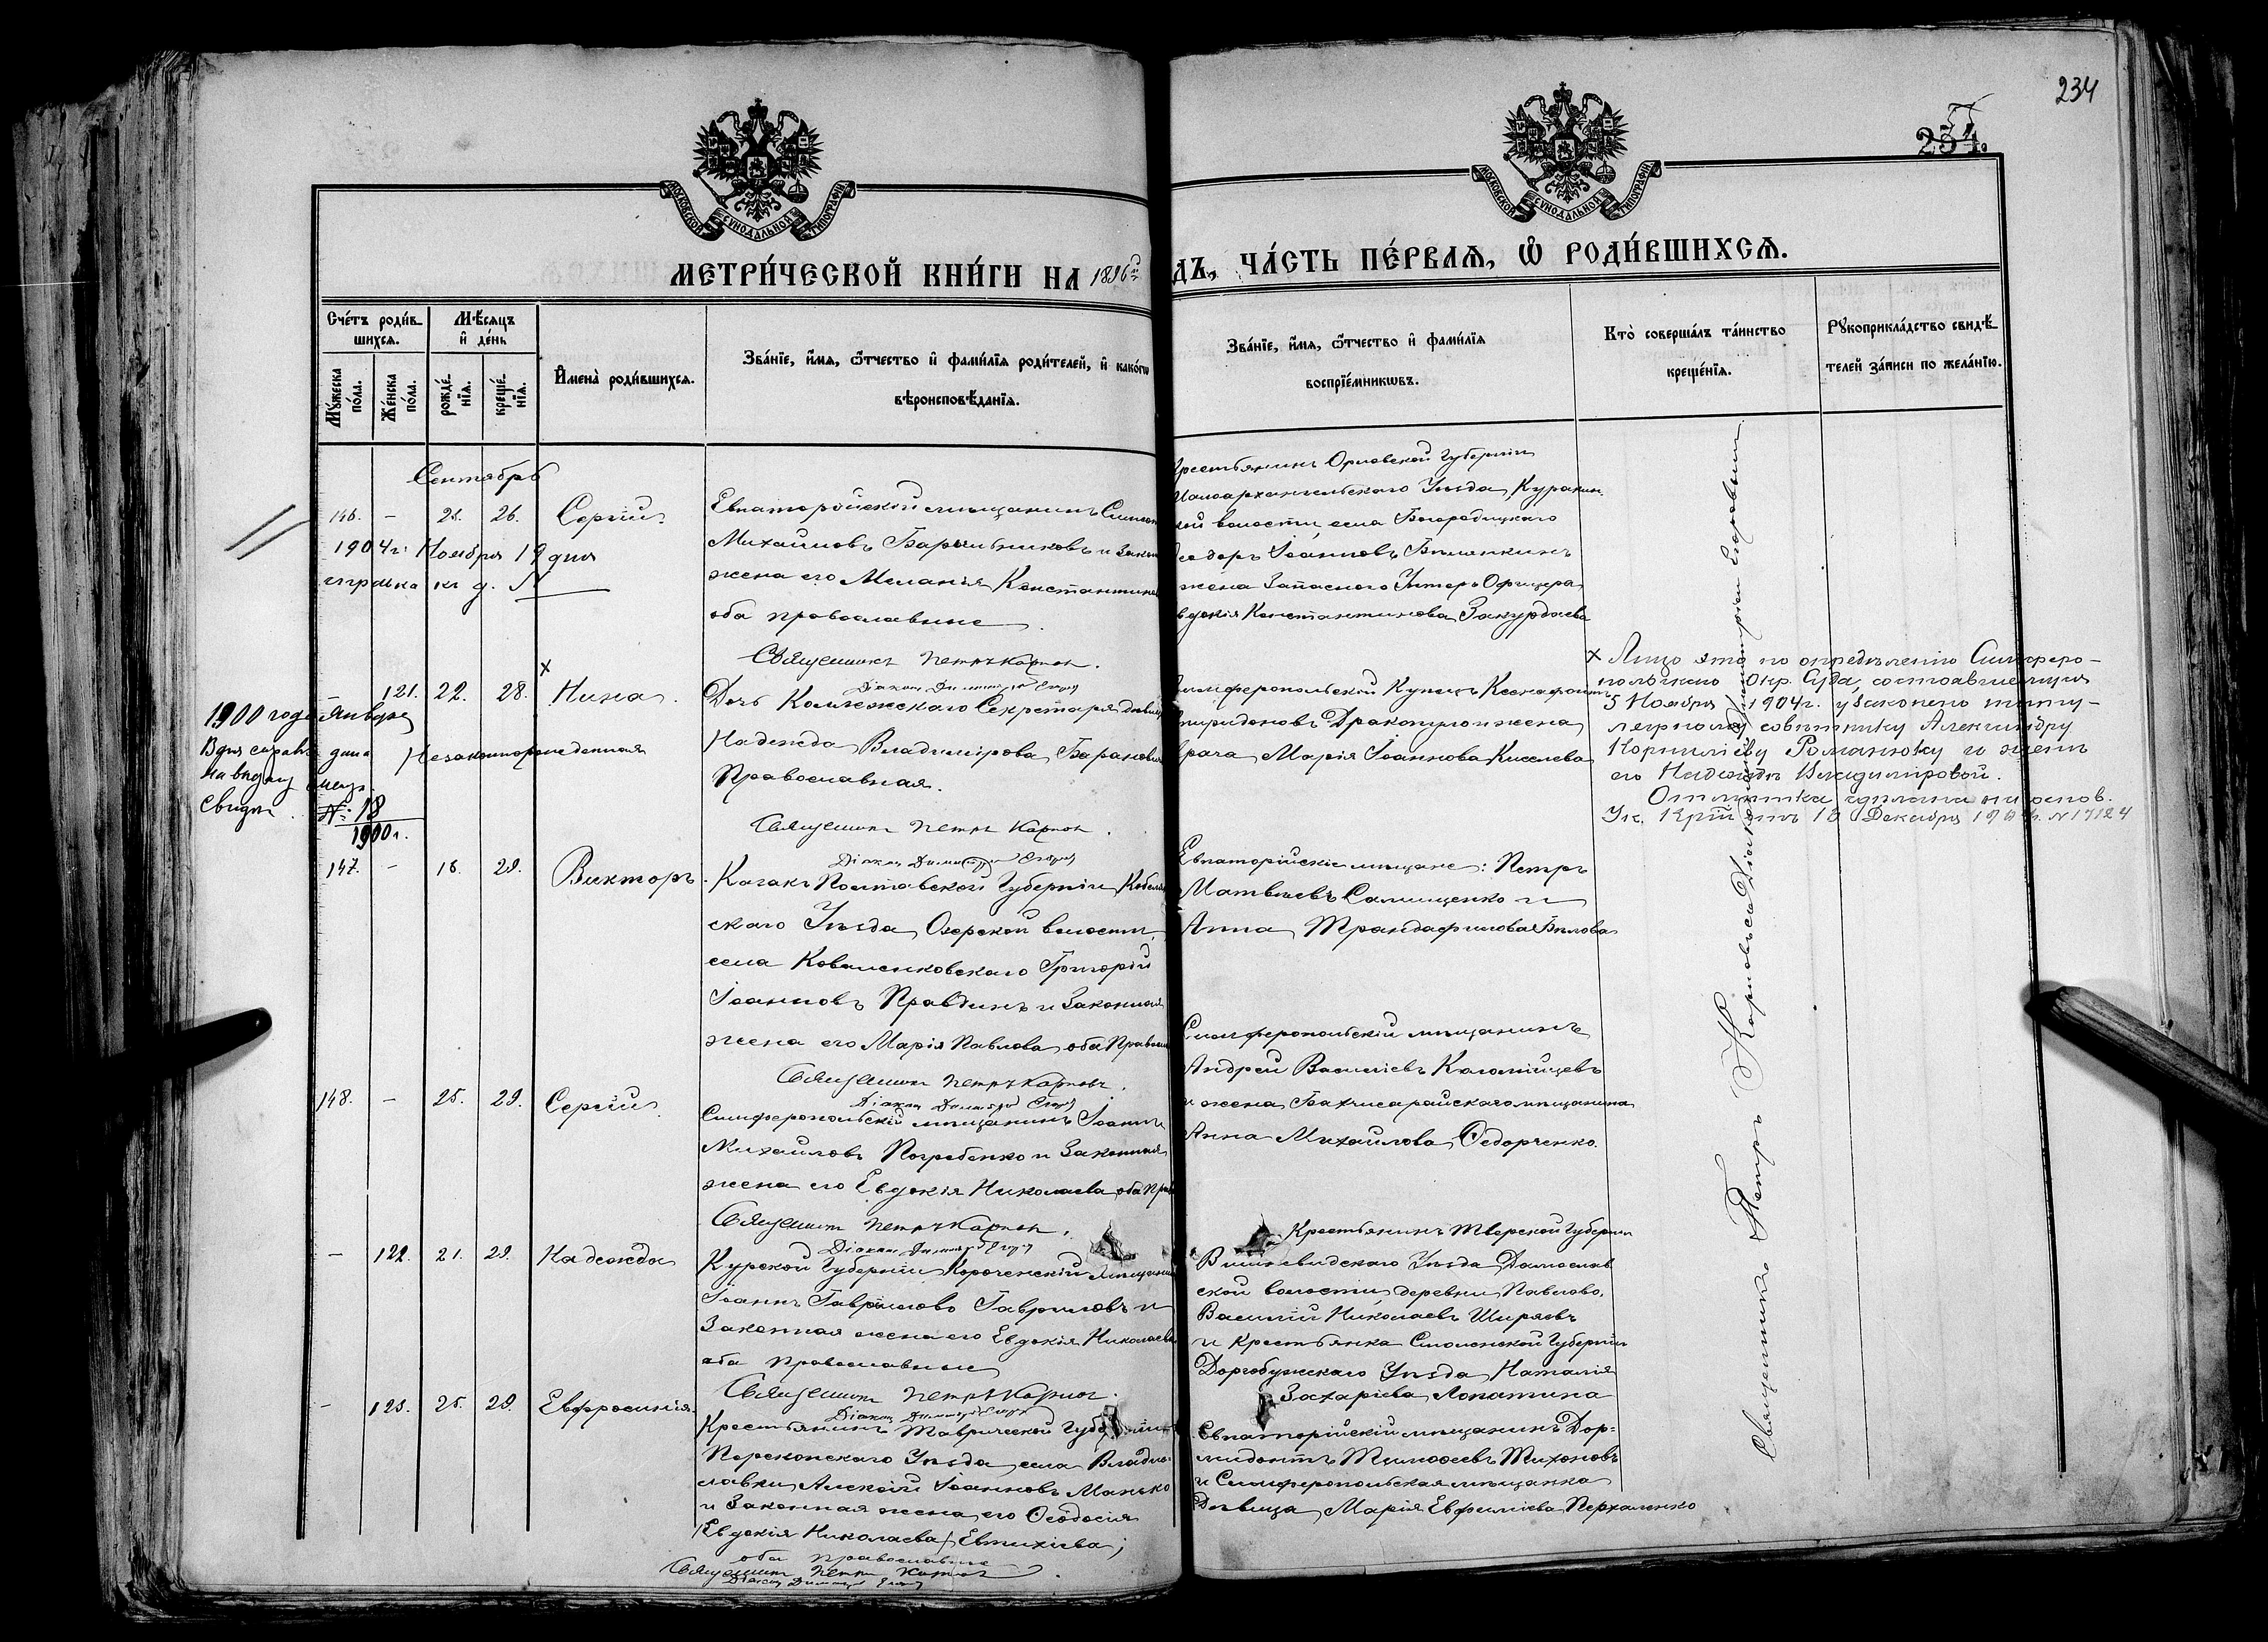 234
234.
МОСКОВСКОЙ СѴНОДАЛЬНОЙ ТИПОГРАФІИ
МОСКОВСКОЙ СѴНОДАЛЬНОЙ ТИПОГРАФІИ
МЕТРИ́ЧЕСКОЙ КНИ́ГИ НА 1896 го
ДЪ, ЧА́СТЬ ПЕ́РВАѦ, Ѡ РОДИ́ВШИХСѦ.
Сче́тъ роди́в-
шихсѧ.
Мѣ́сѧцъ
и де́нь
Мꙋ́жеска по́ла.
Же́нска по́ла.
рожде́-
нїѧ.
креще́-
нїѧ.
Имена̀ роди́вшихсѧ.
Зва́нїе, и́мѧ, ѻ́тчество и фами́лїѧ роди́телей, и како́гѡ
вѣроисповѣ́данїѧ.
Зва́нїе, и́мѧ, ѻ́тчество и фами́лїѧ
воспрїе́мникѡвъ.
Кто̀ соверша́лъ та́инство
креще́нїѧ.
Рꙋкоприкла́дство свидѣ́-
телей за́писи по жела́нїю.
Сентябрь
146. – 25. 26. Сергій.
1904 г. Ноября 19 дня
справка
Евпаторійской мѣщанинъ Симеон
Михаиловъ Барыльниковъ и закон
жена его Меланія Константинов
оба православные
Священникъ Петръ Карпов.
Діаконъ Димитрій
Крестьянинъ Орловской Губерніи
Малоархангельскаго Уѣзда, Куракин-
ской волости, села Богородицкаго
Ѳеодоръ Іоанновъ
жена Запаснаго Унтеръ Офицера
Евдокія Константинова Закурдаева
– 121. 22. 28. × Нина.
1900 года Января
дня
на выдачу метр.
Свидѣт. № 18
1900 г.
Незаконнорожденная
Дочь Коллежскаго Секретаря дѣвица
Надежда Владимірова Баранович
Православная.
Священникъ Петръ Карпов.
Діаконъ Димитрій
Симферопольской Купецъ Ксенофонтъ
Спиридоновъ Дракопуло и жена
врача Марія Іоаннова Киселева
× Лицо это по опредѣленію Симферо-
польскаго Окр. Суда, состоявшемуся
5 Ноября 1904 г. узаконено титу-
лярному совѣтнику Александру
Корниліеву Романюку и женѣ
его Надеждѣ Владиміровой.
Отмѣтка сдѣлана на основ.
Ук. отъ 18 Декабря 1904 г. № 17124
147. – 18. 29. Викторъ.
Казакъ Полтавской Губерніи, Кобеляк
скаго Уѣзда, Озерской волости,
села Коваленковскаго Григорій
Іоанновъ Правдинъ и Законная
жена его Марія Павлова, оба Правосл
Священникъ Петръ Карпов.
Діаконъ Димитрій
Евпаторійскіе мѣщане: Петръ
Матвѣевъ Самищенко и
Анна Трандафилова Бѣлова
148. – 25. 29. Сергій.
Симферопольскій мѣщанинъ Іоаннъ
Михаиловъ Погребенко и Законная
жена его Евдокія Николаева, оба Прав
Священникъ Петръ Карпов.
Діаконъ Димитрій
Симферопольскій мѣщанинъ
Андрей Василіевъ Коломійцевъ
и жена Бахчисарайскаго мѣщанина
Анна Михаилова Ѳедорченко.
– 122. 21. 29. Надежда
Курской Губерніи, Короченскій мѣщанинъ
Іоаннъ Гавриловъ Гавриловъ и
Законная жена его Евдокія Николаева
оба православные
Священникъ Петръ Карпов.
Діаконъ Димитрій
Крестьянинъ Тверской Губерніи
Уѣзда,
ской волости, деревни Павлово,
Василій Николаевъ Ширяевъ
и крестьянка Смоленской Губерніи
Дорогобужскаго Уѣзда Наталія
Захаріева Лопатина
– 123. 25. 29. Евфросинія.
Крестьянинъ Таврической Губерніи
Перекопскаго Уѣзда, села Владис-
лавки, Алексій Іоанновъ Манько
и Законная жена его Ѳеодосія
/Евдокія Николаева/ Евтихіева;
оба православные
Священникъ Петръ Карпов.
Діаконъ Димитрій
Евпаторійскій мѣщанинъ Дор-
мидонтъ Тимоѳеевъ Тихоновъ
и Симферопольская мѣщанка
Дѣвица Марія Евфиміева Перхаленко
Священникъ Петръ Карповъ съ Діакономъ Димитріемъ